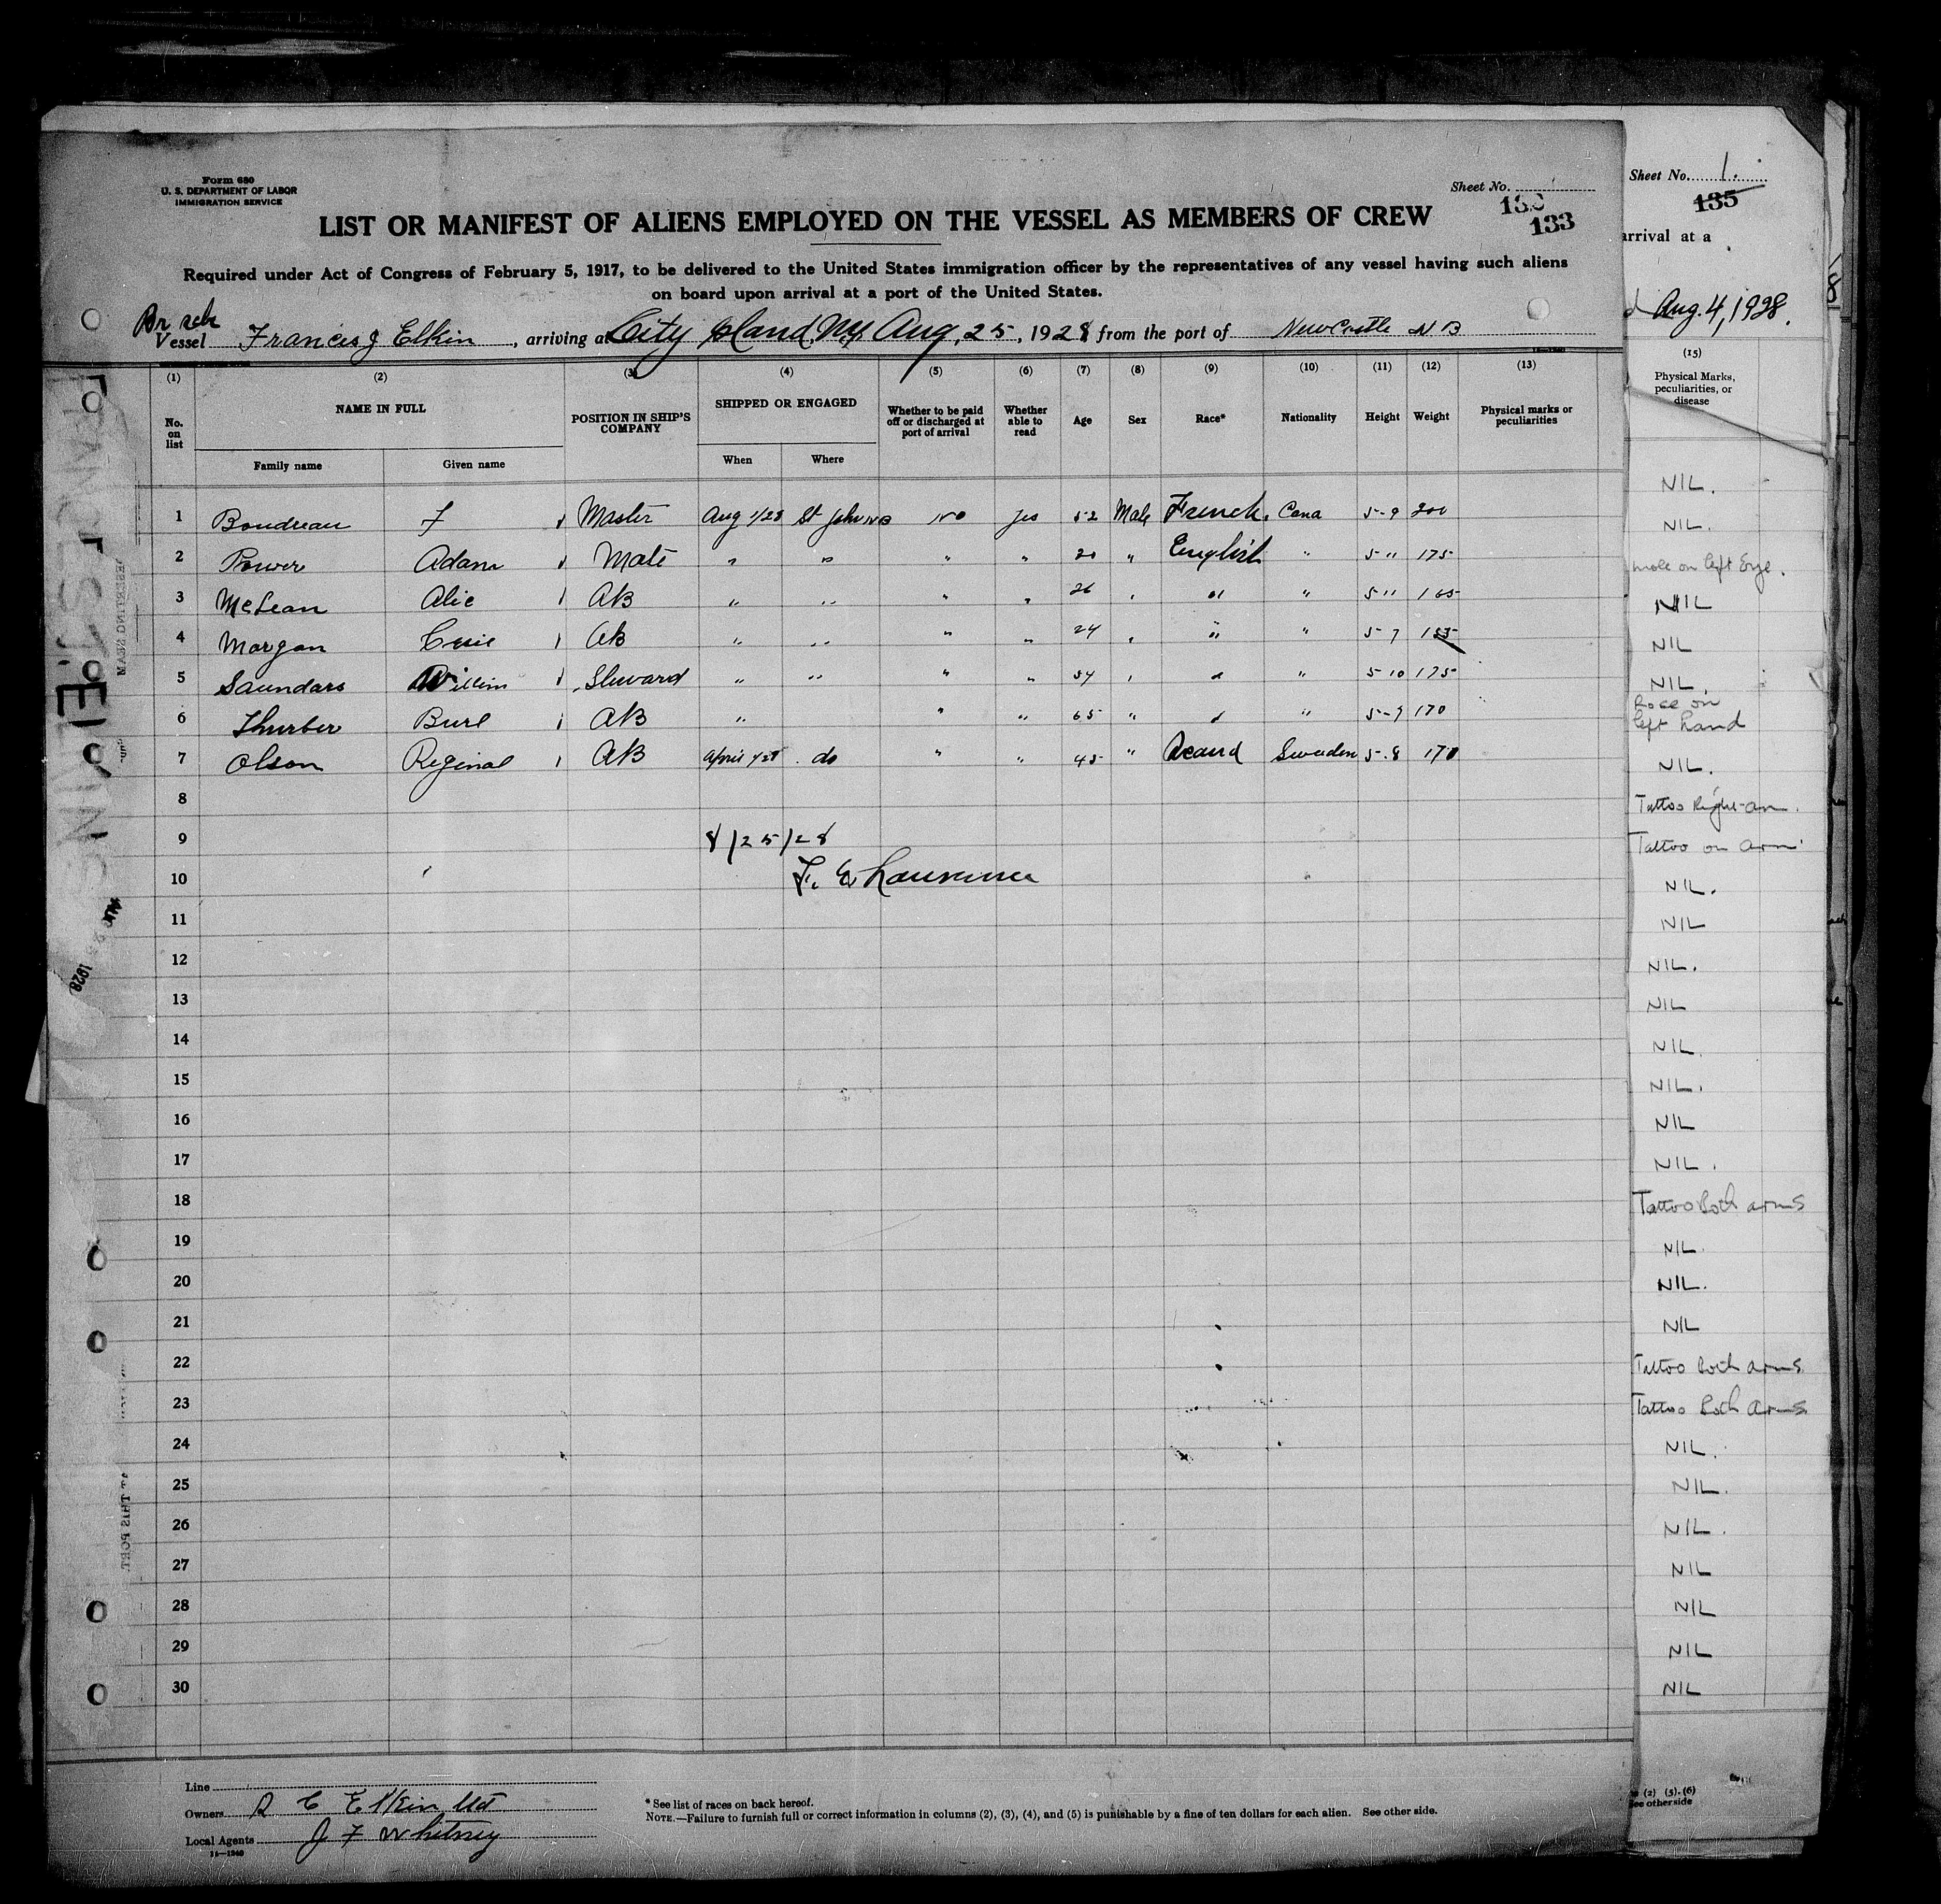 Form 680
U. S. DEPARTMENT OF LABOR
IMMIGRATION SERVICE
Sheet No.
133
LIST OR MANIFEST OF ALIENS EMPLOYED ON THE VESSEL AS MEMBERS OF CREW
Required under Act of Congress of February 5, 1917, to be delivered to the United States immigration officer by the representatives of any vessel having such aliens
on board upon arrival at a port of the United States.
Br sch
Vessel Francis J Elkin, arriving at City Island, N.Y. Aug, 25, 1928 from the port of NewCastle N B
(1) (2) (3) (4) (5) (6) (7) (8) (9) (10) (11) (12) (13)
No. on list NAME IN FULL POSITION IN SHIP'S COMPANY SHIPPED OR ENGAGED Whether to be paid off or discharged at port of arrival Whether able to read Age Sex Race* Nationality Height Weight Physical marks or peculiarities
Family name Given name When Where
1 Boudreau F Master Aug 1/28 St John NB No Yes 52 Male French Cana 5-9 200
2 Power Adam Mate " " " " 20 " English " 5 11 175
3 McLean Alic AB " " " " 26 " " " 5 11 165
4 Morgan AB " " " " 24 " " " 5 7
5 Saundars Steward " " " " " " " 5 10 175
6 Thurber Burl AB " " " 65 " " " 5-9 170
7 Olson Reginal AB April do " " 45 " Scand Sweden 5.8 170
8
9 8/25/28
10
11
12
13
14
15
16
17
18
19
20
21
22
23
24
25
26
27
28
29
30
Line
Owners Elkin Ltd
Local Agents J F Whitney
11—1240
* See list of races on back hereof.
NOTE.—Failure to furnish full or correct information in columns (2), (3), (4), and (5) is punishable by a fine of ten dollars for each alien. See other side.
Sheet No. 1.
135
arrival at a
Aug. 4, 1928.
(15)
Physical Marks,
peculiarities, or
disease
NIL.
NIL.
mole on left Eye.
NIL
NIL
NIL.
left hand
NIL.
Tattoo Right arm.
Tattoo on arm
NIL.
NIL
NIL.
NIL
NIL.
NIL.
NIL
NIL.
Tattoo Both arms
NIL.
NIL.
NIL
Tattoo both arms
Tattoo Both arms
NIL.
NIL.
NIL.
NIL
NIL
NIL
NIL
(2) (5). (6)
See other side